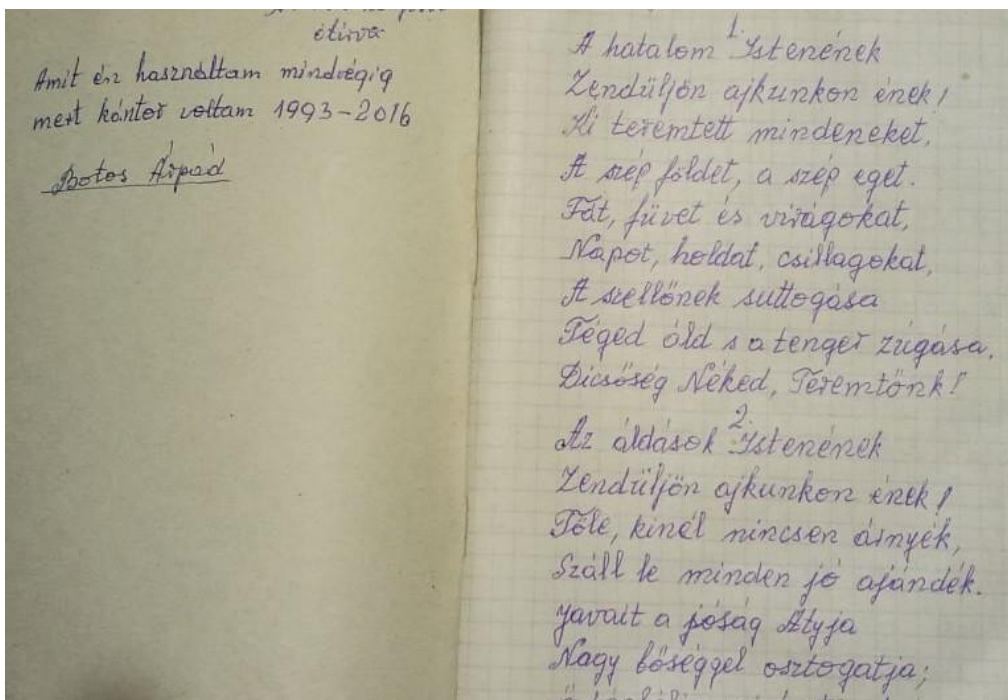 átírva
Amit én használtam mindvégig
mert kántor voltam 1993-2016
Botos Árpád
1.
A hatalom Istenének
Zendüljön ajkunkon ének!
Ki teremtett mindeneket,
A szép földet, a szép eget.
Fát, füvet és virágokat,
Napot, holdat, csillagokat,
A szellőnek suttogása
Téged áld s a tenger zúgása,
Dicsőség Néked, Teremtőnk!
2.
Az áldások Istenének
Zendüljön ajkunkon ének!
Tőle, kinél nincsen árnyék,
Száll le minden jó ajándék.
Javait a jóság Atyja
Nagy bőséggel osztogatja;